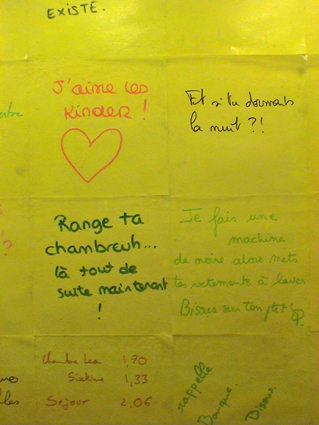 EXISTE.
J'aime les
Kinder !
Et si tu dormais
la nuit ?!
Range ta
chambreuh...
là tout de
suite maintenant
!
Je fais une
machine
de noire alors mets
tes vetements à laver.
Bisous sur ton
?
1,70
1,33
Sejour 2,06
rappelle
Banque.